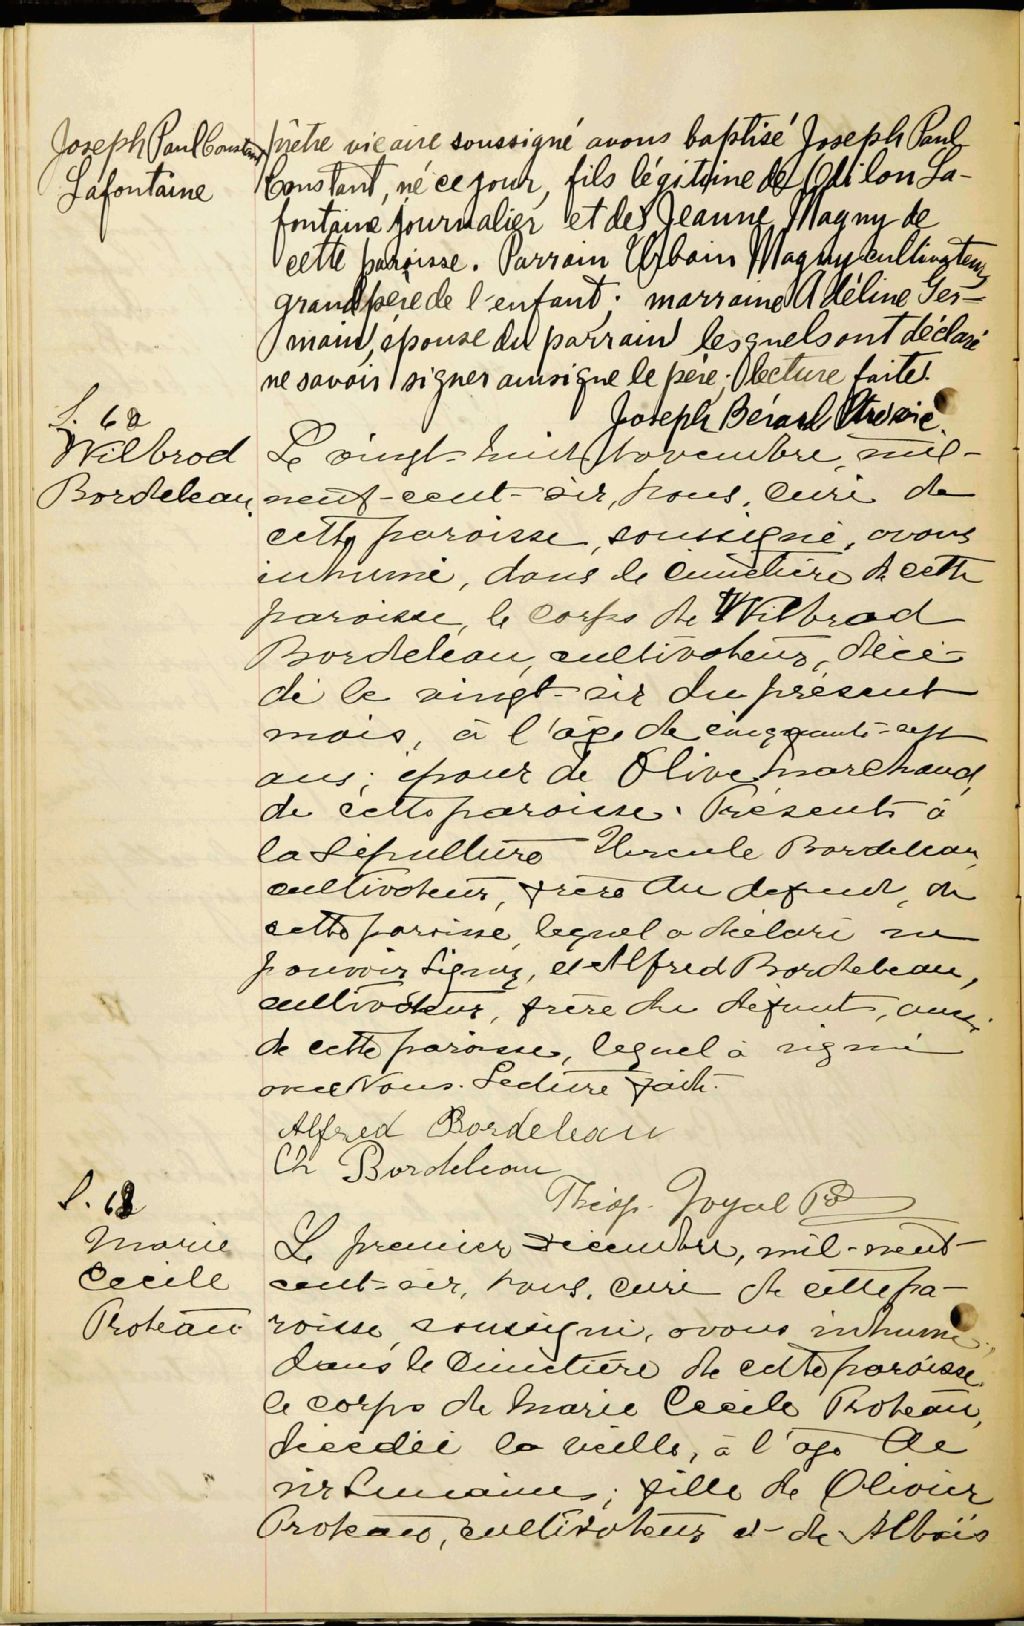 Joseph Paul Constant
Lafontaine
prêtre vicaire soussigné avons baptisé Joseph Paul
Constant, né ce jour, fils légitime de Odilon La-
fontaine journalier et de Jeanne Magny de
cette paroisse. Parrain Urbain Magny cultivateur
grand père de l'enfant; marraine Adéline Ger-
main, épouse du parrain lesquels ont déclaré
ne savoir signer ainsi que le père; lecture faite.
Joseph Bérard Ptre vic.
S. 62
Wilbrod
Bordeleau
Le vingt-huit Novembre, mil-
neuf-cent-six, nous, curé de
cette paroisse, soussigné, avons
inhumé, dans le cimetière de cette
paroisse, le corps de Wilbrod
Bordeleau, cultivateur, décé-
dé le vingt-six du présent
mois, à l'âge de cinquante-sept
ans; époux de Olive Marchand,
de cette paroisse. Présents à
la sépulture Hercule Bordeleau,
cultivateur, frère du defunt, de
cette paroisse, lequel a déclaré ne
pouvoir signer, et Alfred Bordeleau,
cultivateur, frère du défunt, aussi
de cette paroisse, lequel à signé
avec Nous. Lecture faite.
Alfred Bordeleau
Ch Bordeleau
Théop. Joyal
S. 63
Marie
Cecile
Proteau
Le premier Décembre, mil-neuf-
cent-six, nous, curé de cette pa-
roisse, soussigné, avons inhumé,
dans le cimetière de cette paroisse,
le corps de Marie Cecile Proteau,
décédée la veille, à l'age de
six semaines; fille de Olivier
Proteau, cultivateur et de Alboïs